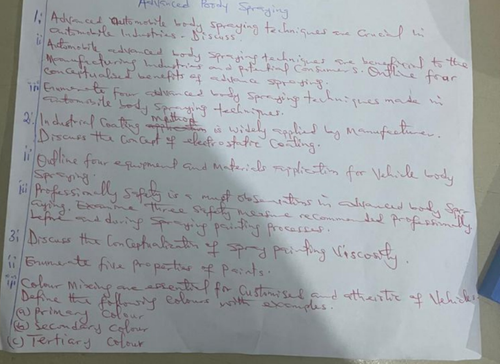 Advanced Body Spraying
1. i Advanced Automobile body spraying techniques are crucial in
automobile Industries. Discuss.
ii Automobile advanced body spraying techniques are beneficial to the
Manufacturing Industries and potential Consumers. Outline four
conceptualised benefits of advance spraying.
iii Enumerate four advanced body spraying techniques made in
automobile body spraying techniques.
2. i Industrial Coating method is widely applied by Manufacturer.
Discuss the Concept of electrostatic Coating.
ii Outline four equipment and Materials application for Vehicle body
Spraying.
iii Professionally Safety is a must observations in advanced body Spr
aying. Examine Three Safety measure recommended professionally
before and during Spraying painting processes.
3. i Discuss the Conceptualization of Spray painting Viscosity.
ii Enumerate five Properties of Paints.
iii Colour Mixing are essential for Customised and of Vehicle
Define the following colours with examples.
(a) Primary Colour
(b) Secondary Colour
(c) Tertiary Colour